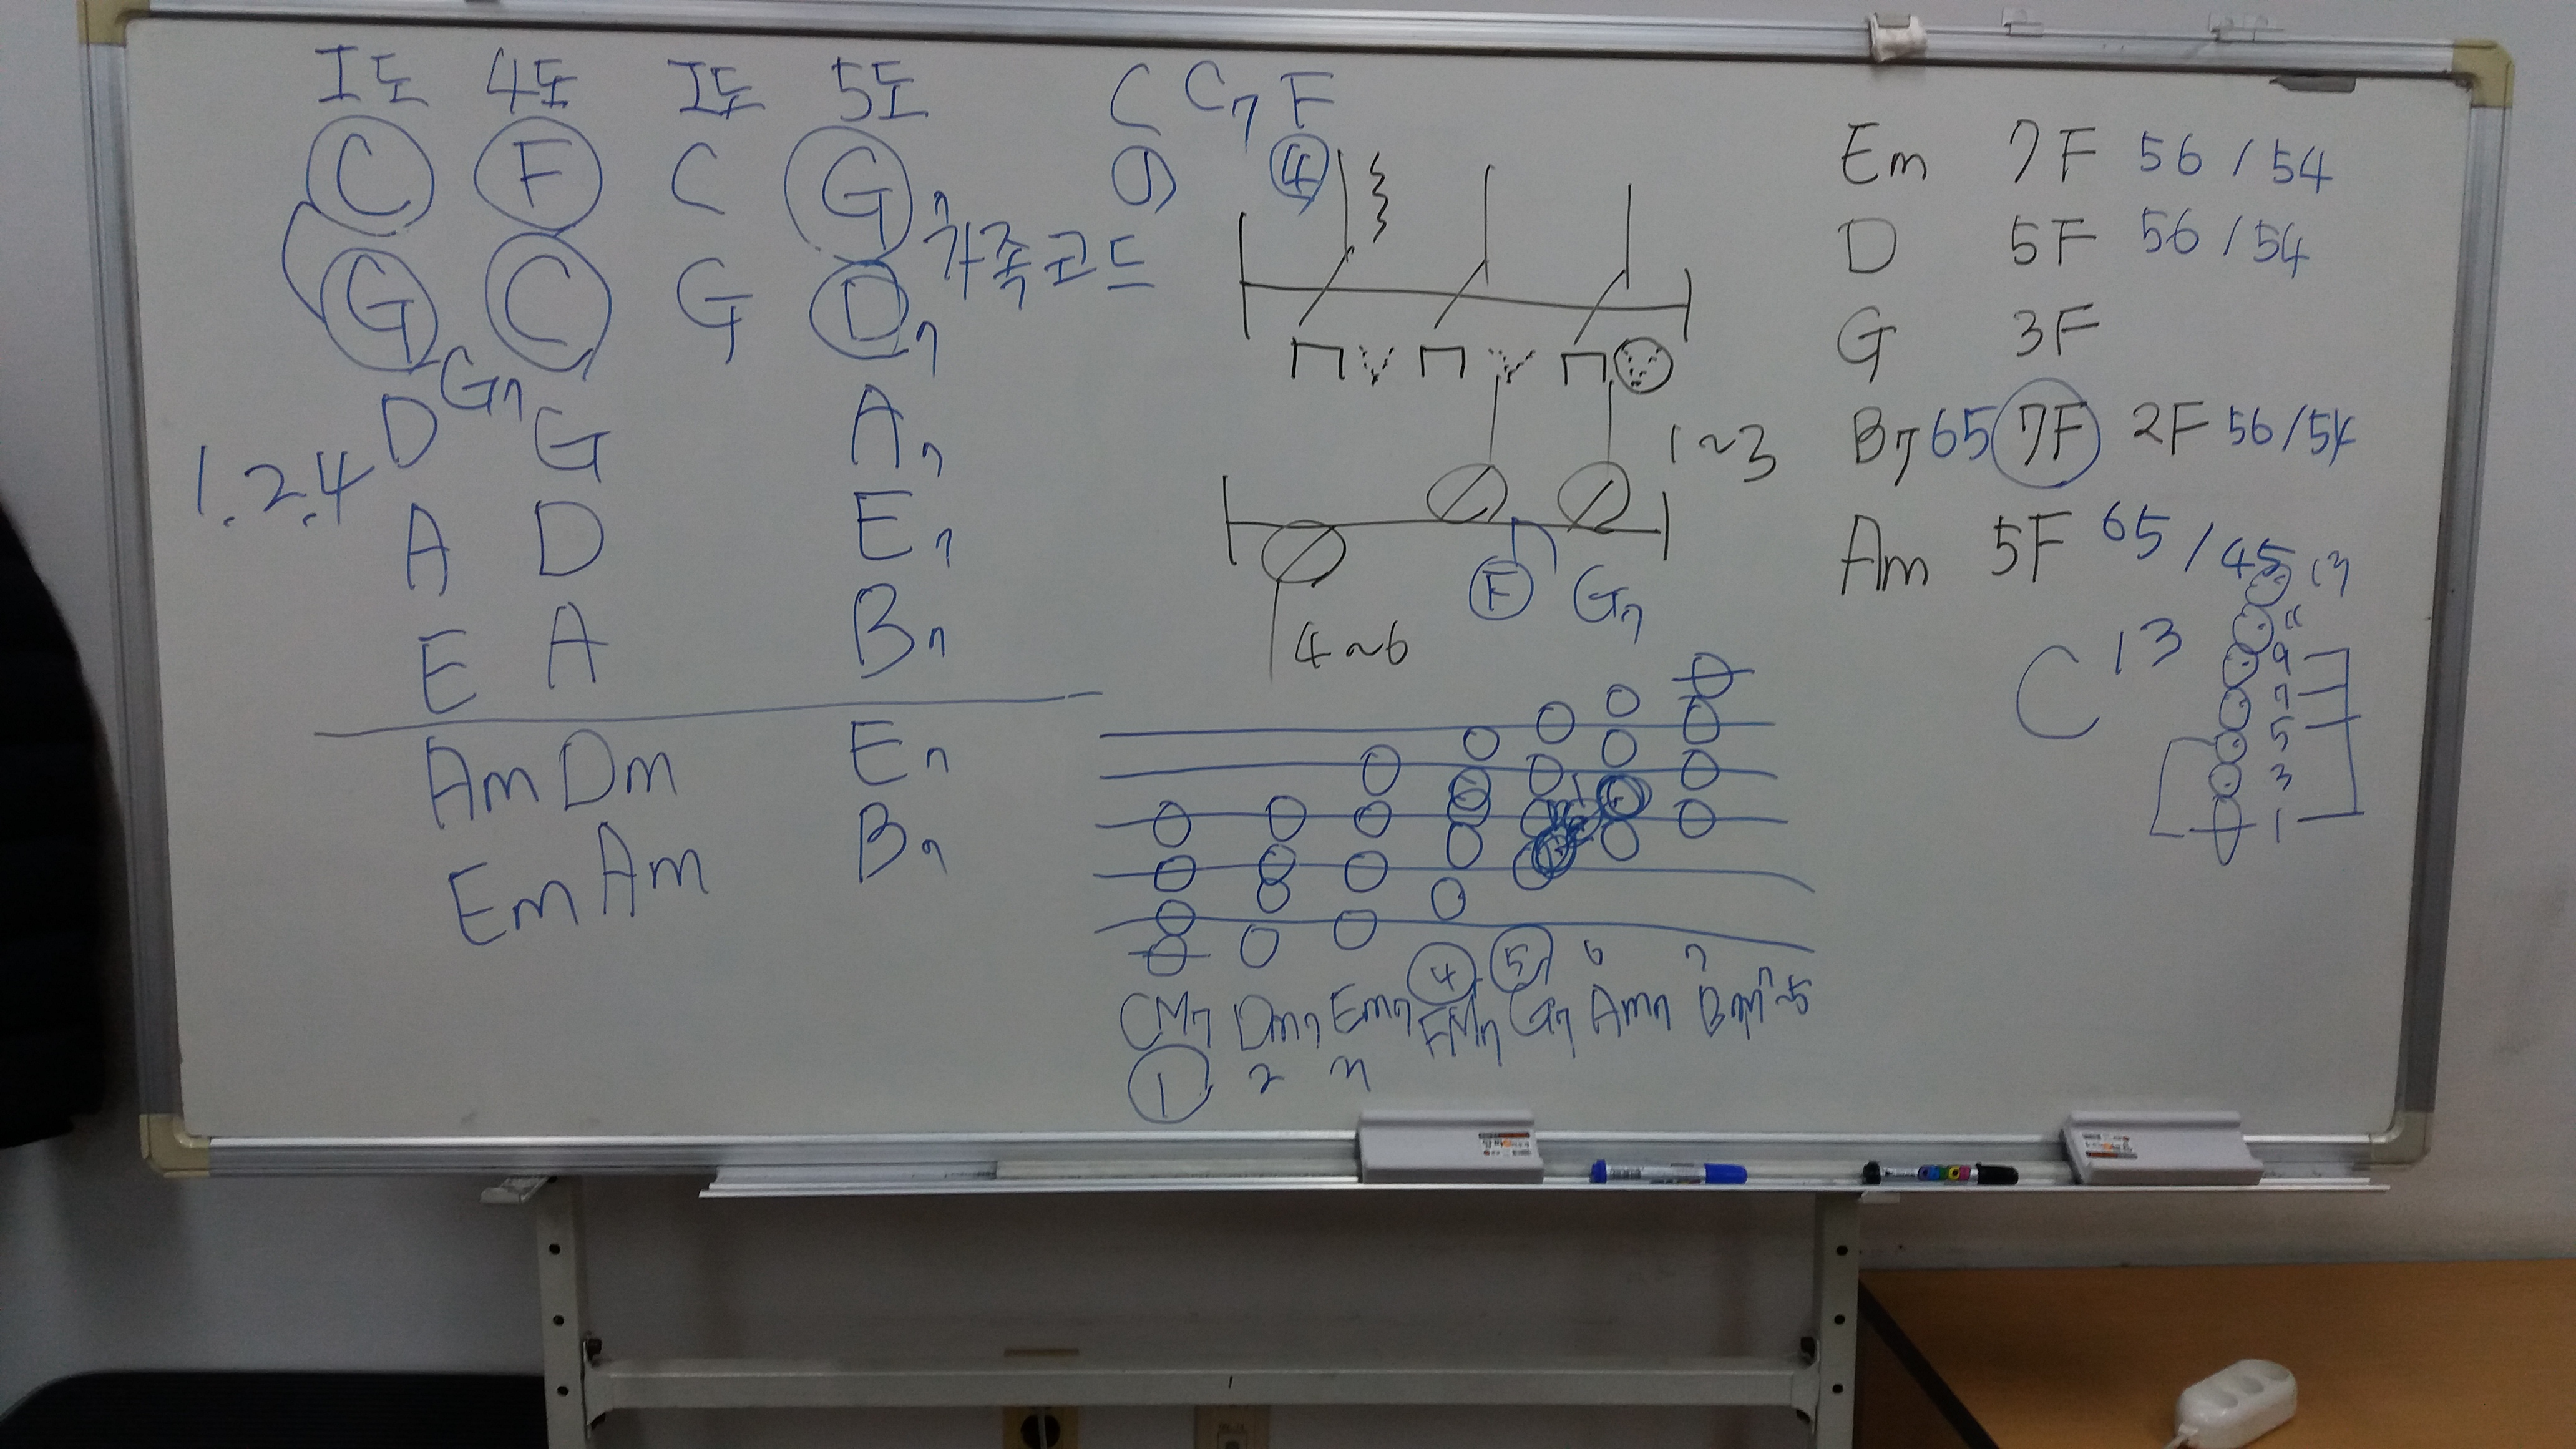 I도 4도 I도 5도
C F C G7
가족코드
G C G D7
G7
D G A7
1.2.4
A D E7
E A B7
Am Dm E7
Em Am B7
C C7 F
④
1~3
F G7
4~6
④ ⑤ 6 7
CM7 Dm7 Em7 FM7 G7 Am7 Bm7-5
① 2
Em 7F 56/54
D 5F 56/54
G 3F
B7 65 7F 2F 56/54
Am 5F 65/45
C13
13
11
9
7
5
3
1